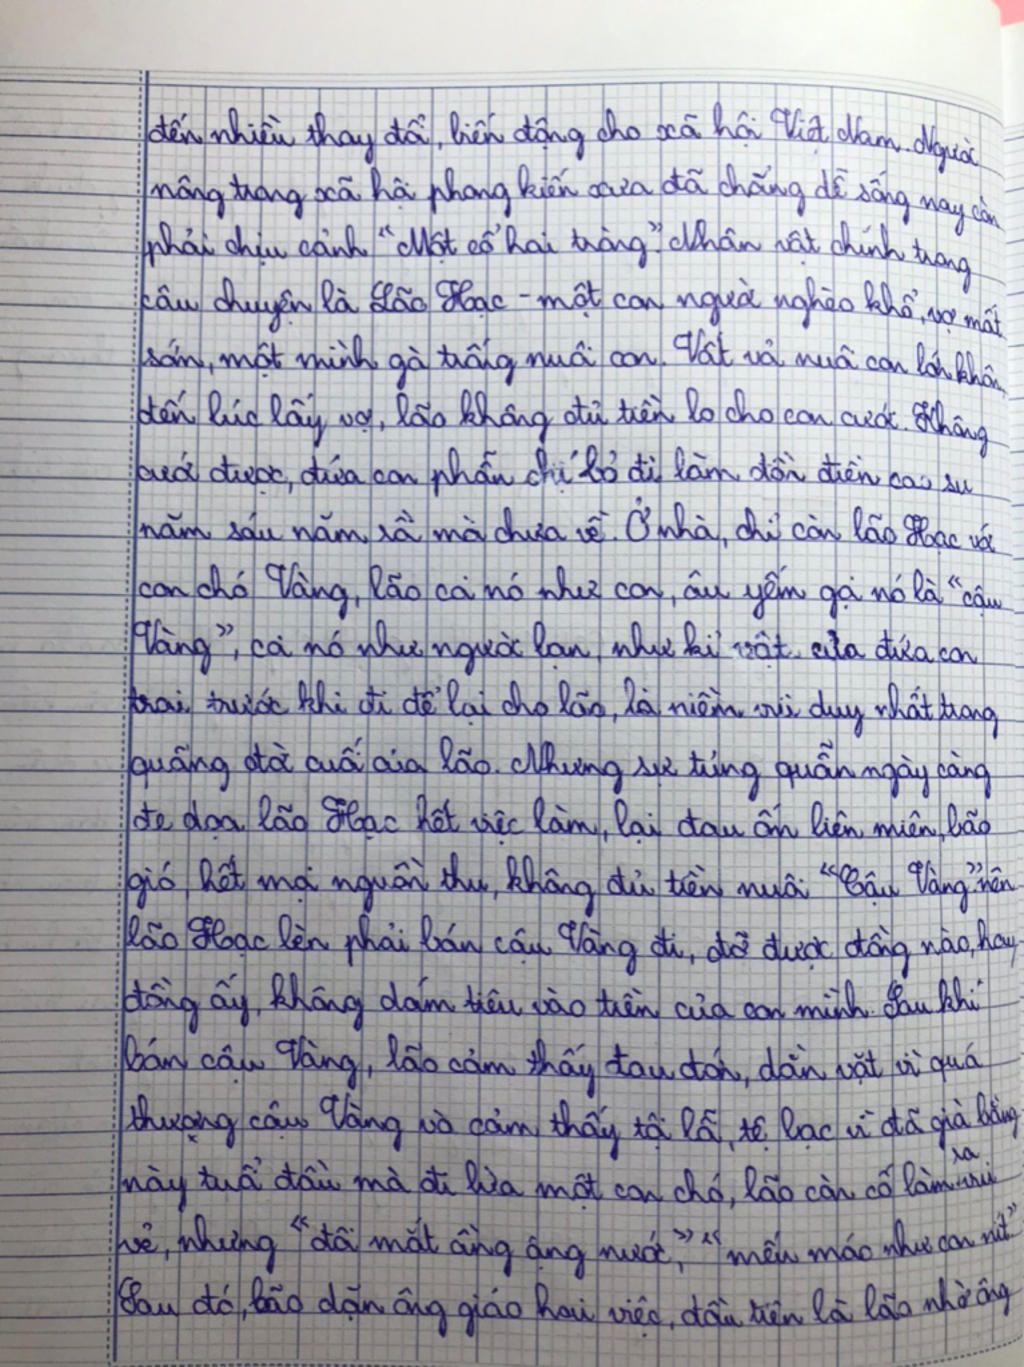 đến nhiều thay đổi, biến động cho xã hội Việt Nam. Người
nông trong xã hội phong kiến xưa đã chẳng dễ sống nay còn
phải chịu cảnh "Một cổ hai tròng". Nhân vật chính trong
câu chuyện là Lão Hạc - một con người nghèo khổ, vợ mất
sớm, một mình gà trống nuôi con. Vất vả nuôi con lớn khôn,
đến lúc lấy vợ, lão không đủ tiền lo cho con cưới. Không
cưới được, đứa con phẫn chí bỏ đi làm đồn điền cao su
năm sáu năm rồi mà chưa về. Ở nhà, chỉ còn lão Hạc với
con chó Vàng, lão coi nó như con, âu yếm gọi nó là "cậu
Vàng", coi nó như người bạn, như kỉ vật của đứa con
trai trước khi đi để lại cho lão, là niềm vui duy nhất trong
quãng đời cuối của lão. Nhưng sự túng quẫn ngày càng
đe dọa lão Hạc hết việc làm, lại đau ốm liên miên, bão
gió, hết mọi nguồn thu, không đủ tiền nuôi "Cậu Vàng" nên
lão Hạc lên phải bán cậu Vàng đi, đỡ được đồng nào, hay
đồng ấy, không dám tiêu vào tiền của con mình. Sau khi
bán cậu Vàng, lão cảm thấy đau đớn, dằn vặt vì quá
thương cậu Vàng và cảm thấy tội lỗi, tệ bạc vì đã già bằng
này tuổi đầu mà đi lừa một con chó, lão còn cố làm ra vui
vẻ, nhưng "đôi mắt ầng ậng nước," "mếu máo như con nít"
Sau đó, lão dặn ông giáo hai việc, đầu tiên là lão nhờ ông